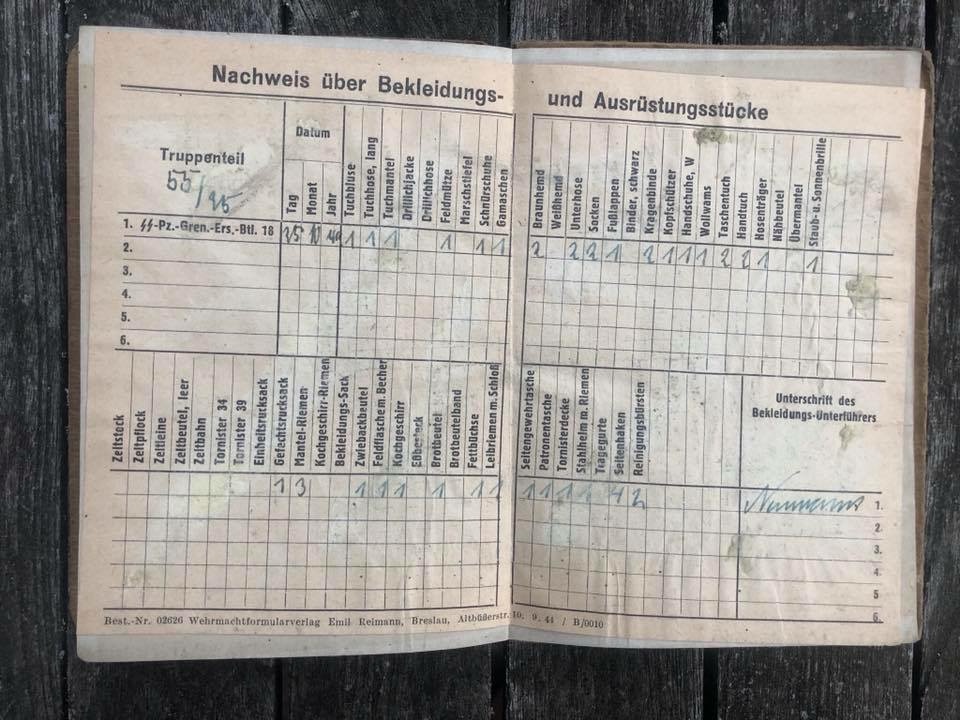 Nachweis über Bekleidungs- und Ausrüstungsstücke
Truppenteil
55/
Datum
Tag
Monat
Jahr
Tuchbluse
Tuchhose, lang
Tuchmantel
Drillichjacke
Drillichhose
Feldmütze
Marschstiefel
Schnürschuhe
Gamaschen
Braunhemd
Weißhemd
Unterhose
Socken
Fußlappen
Binder, schwarz
Kragenbinde
Kopfschützer
Handschuhe, W
Wollwams
Taschentuch
Handtuch
Hosenträger
Nähbeutel
Übermantel
Staub- u. Sonnenbrille
1. ᛋᛋ-Pz.-Gren.-Ers.-Btl. 18 1 1 1 1 1 1 2 2 2 1 2 1 1 1 2 2 1 1
2.
3.
4.
5.
6.
Zeltstock
Zeltpflock
Zeltleine
Zeltbeutel, leer
Zeltbahn
Tornister 34
Tornister 39
Einheitsrucksack
Gefechtsrucksack
Mantel-Riemen
Kochgeschirr-Riemen
Bekleidungs-Sack
Zwiebackbeutel
Feldflasche m. Becher
Kochgeschirr
Eßbesteck
Brotbeutel
Brotbeutelband
Fettbüchse
Leibriemen m. Schloß
Seitengewehrtasche
Patronentasche
Tornisterdecke
Stahlhelm m. Riemen
Tragegurte
Seitenhaken
Reinigungsbürsten
Unterschrift des
Bekleidungs-Unterführers
1 3 1 1 1 1 1 1 1 1 1 1 4 2 1.
2
3.
4
5
6.
Best.-Nr. 02626 Wehrmachtformularverlag Emil Reimann, Breslau, Altbüßerstr. 10. 9. 44 / B/0010